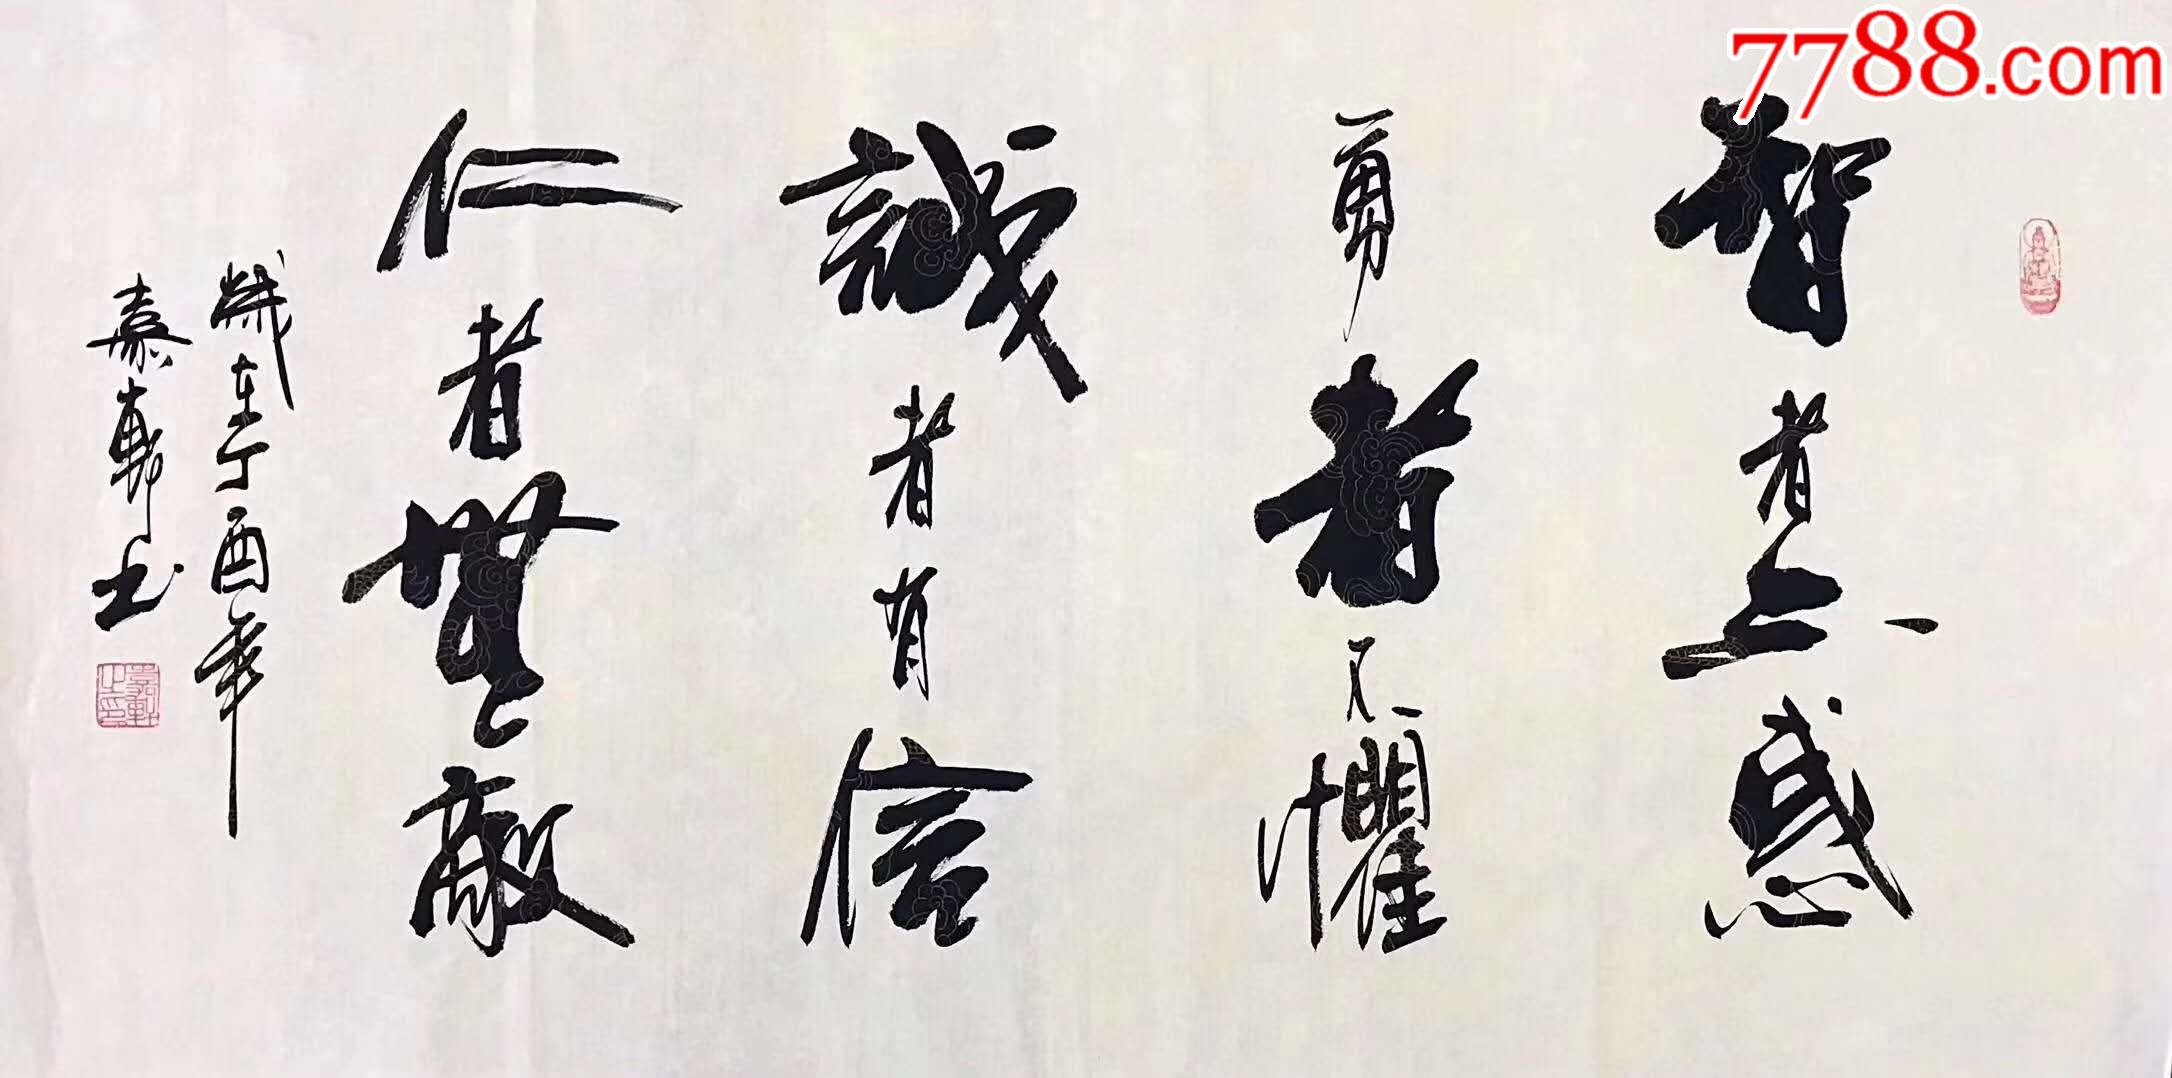 7788.com
智者不惑
勇者不懼
誠者有信
仁者無敵
歲在丁酉年
嘉軒書